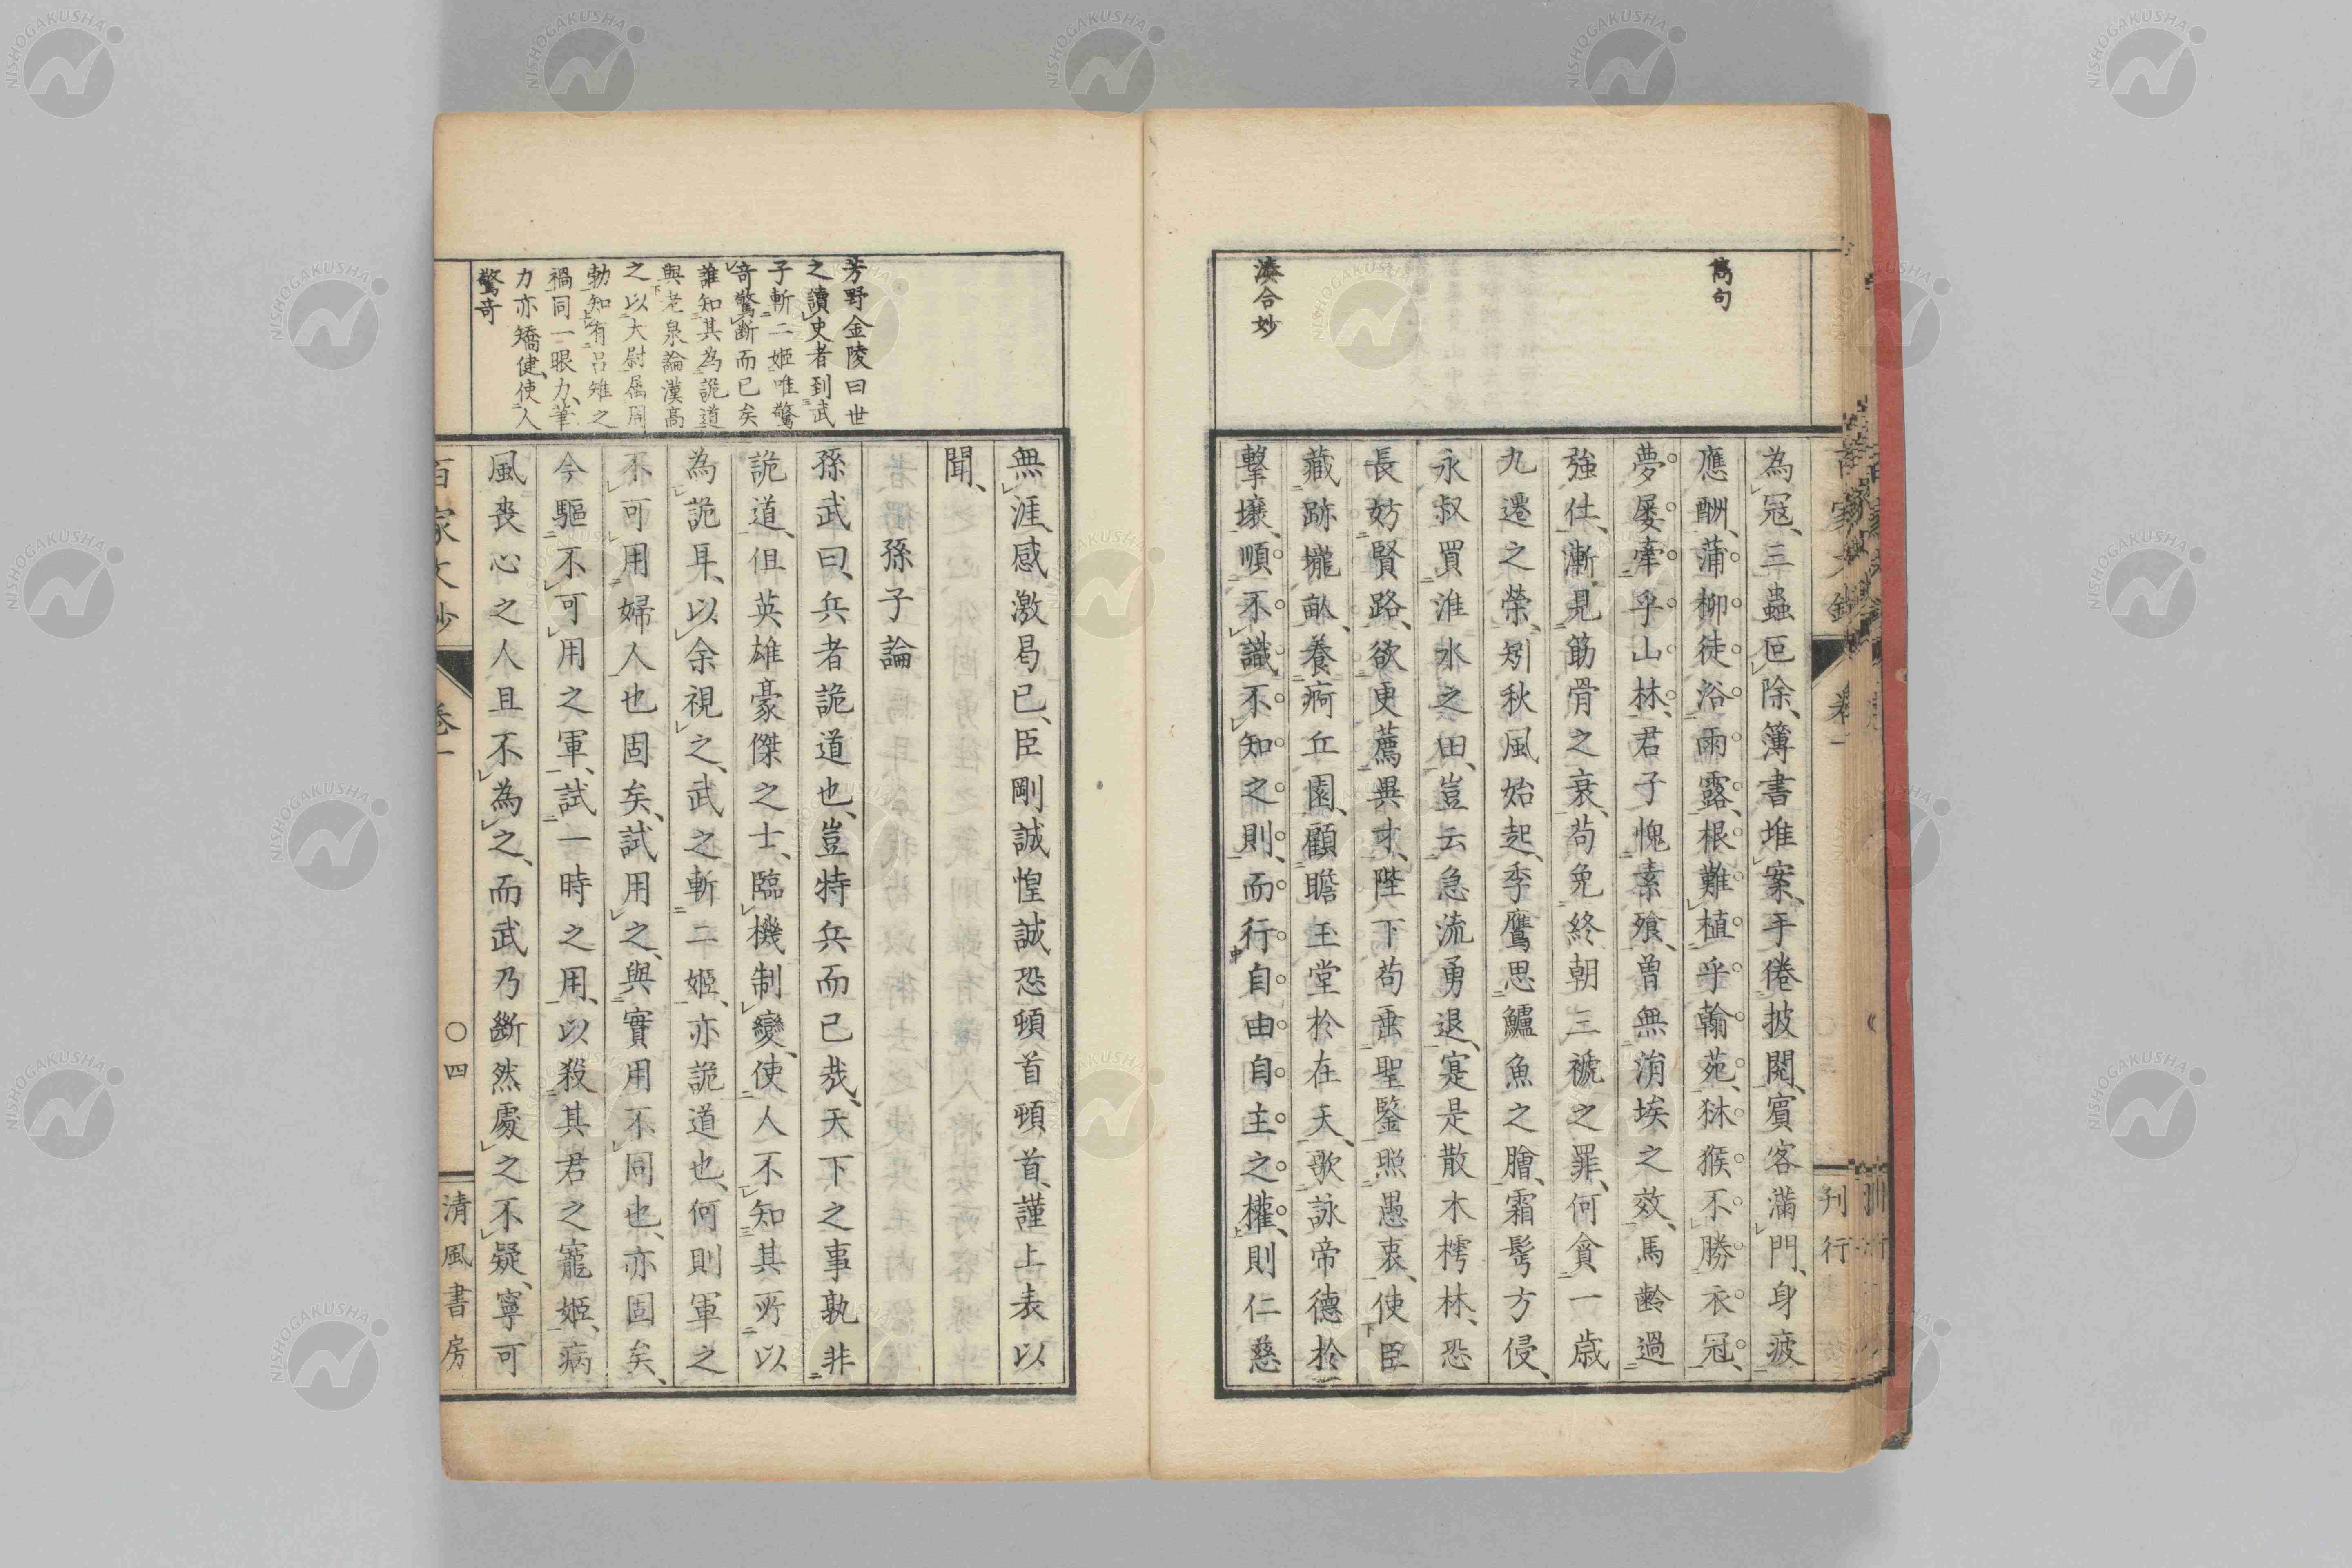 雋句
湊合妙
為冦、三蟲叵除、簿書堆案、手倦披閱、賓客滿門、身疲
應酬、蒲柳徒浴雨露、根難植乎翰苑、狝猴不勝衣冠、
夢屡牽乎山林、君子愧素飱、曽無涓埃之效、馬齡過
強仕、漸見筋骨之衰、苟免終朝三褫之罪、何貪一歳
九遷之榮、矧秋風始起、季鷹思鱸魚之膾、霜髩方侵、
永叔買淮水之田、豈云急流勇退、寔是散木樗林、恐
長妨賢路、欲更薦異才、陛下苟垂聖鑒照愚衷、使臣
藏跡壠畝、養痾丘園、顧瞻玉堂於在天、歌詠帝德於
擊壤、順不識不知之則、而行自由自主之權、則仁慈
刊行
無涯、感激曷已、臣剛誠惶誠恐頓首頓首、謹上表以
聞、
孫子論
孫武曰、兵者詭道也、豈特兵而已㢤、天下之事孰非
詭道、但英雄豪傑之士、臨機制變、使人不知其所以
為詭耳、以余視之、武之斬二姬、亦詭道也、何則軍之
不可用婦人也固矣、試用之、與實用不同也、亦固矣、
今驅不可用之軍、試一時之用、以殺其君之寵姬、病
風喪心之人且不為之、而武乃斷然處之不疑、寧可
芳野金陵曰世
之讀史者到武
子斬二姬唯驚
奇驚断而已矣
誰知其為詭道
與老泉論漢高
之以大尉屬周
勃知有呂雉之
禍同一眼力、筆
力亦矯健、使人
驚奇
百家文鈔
卷一
〇四
清風書房